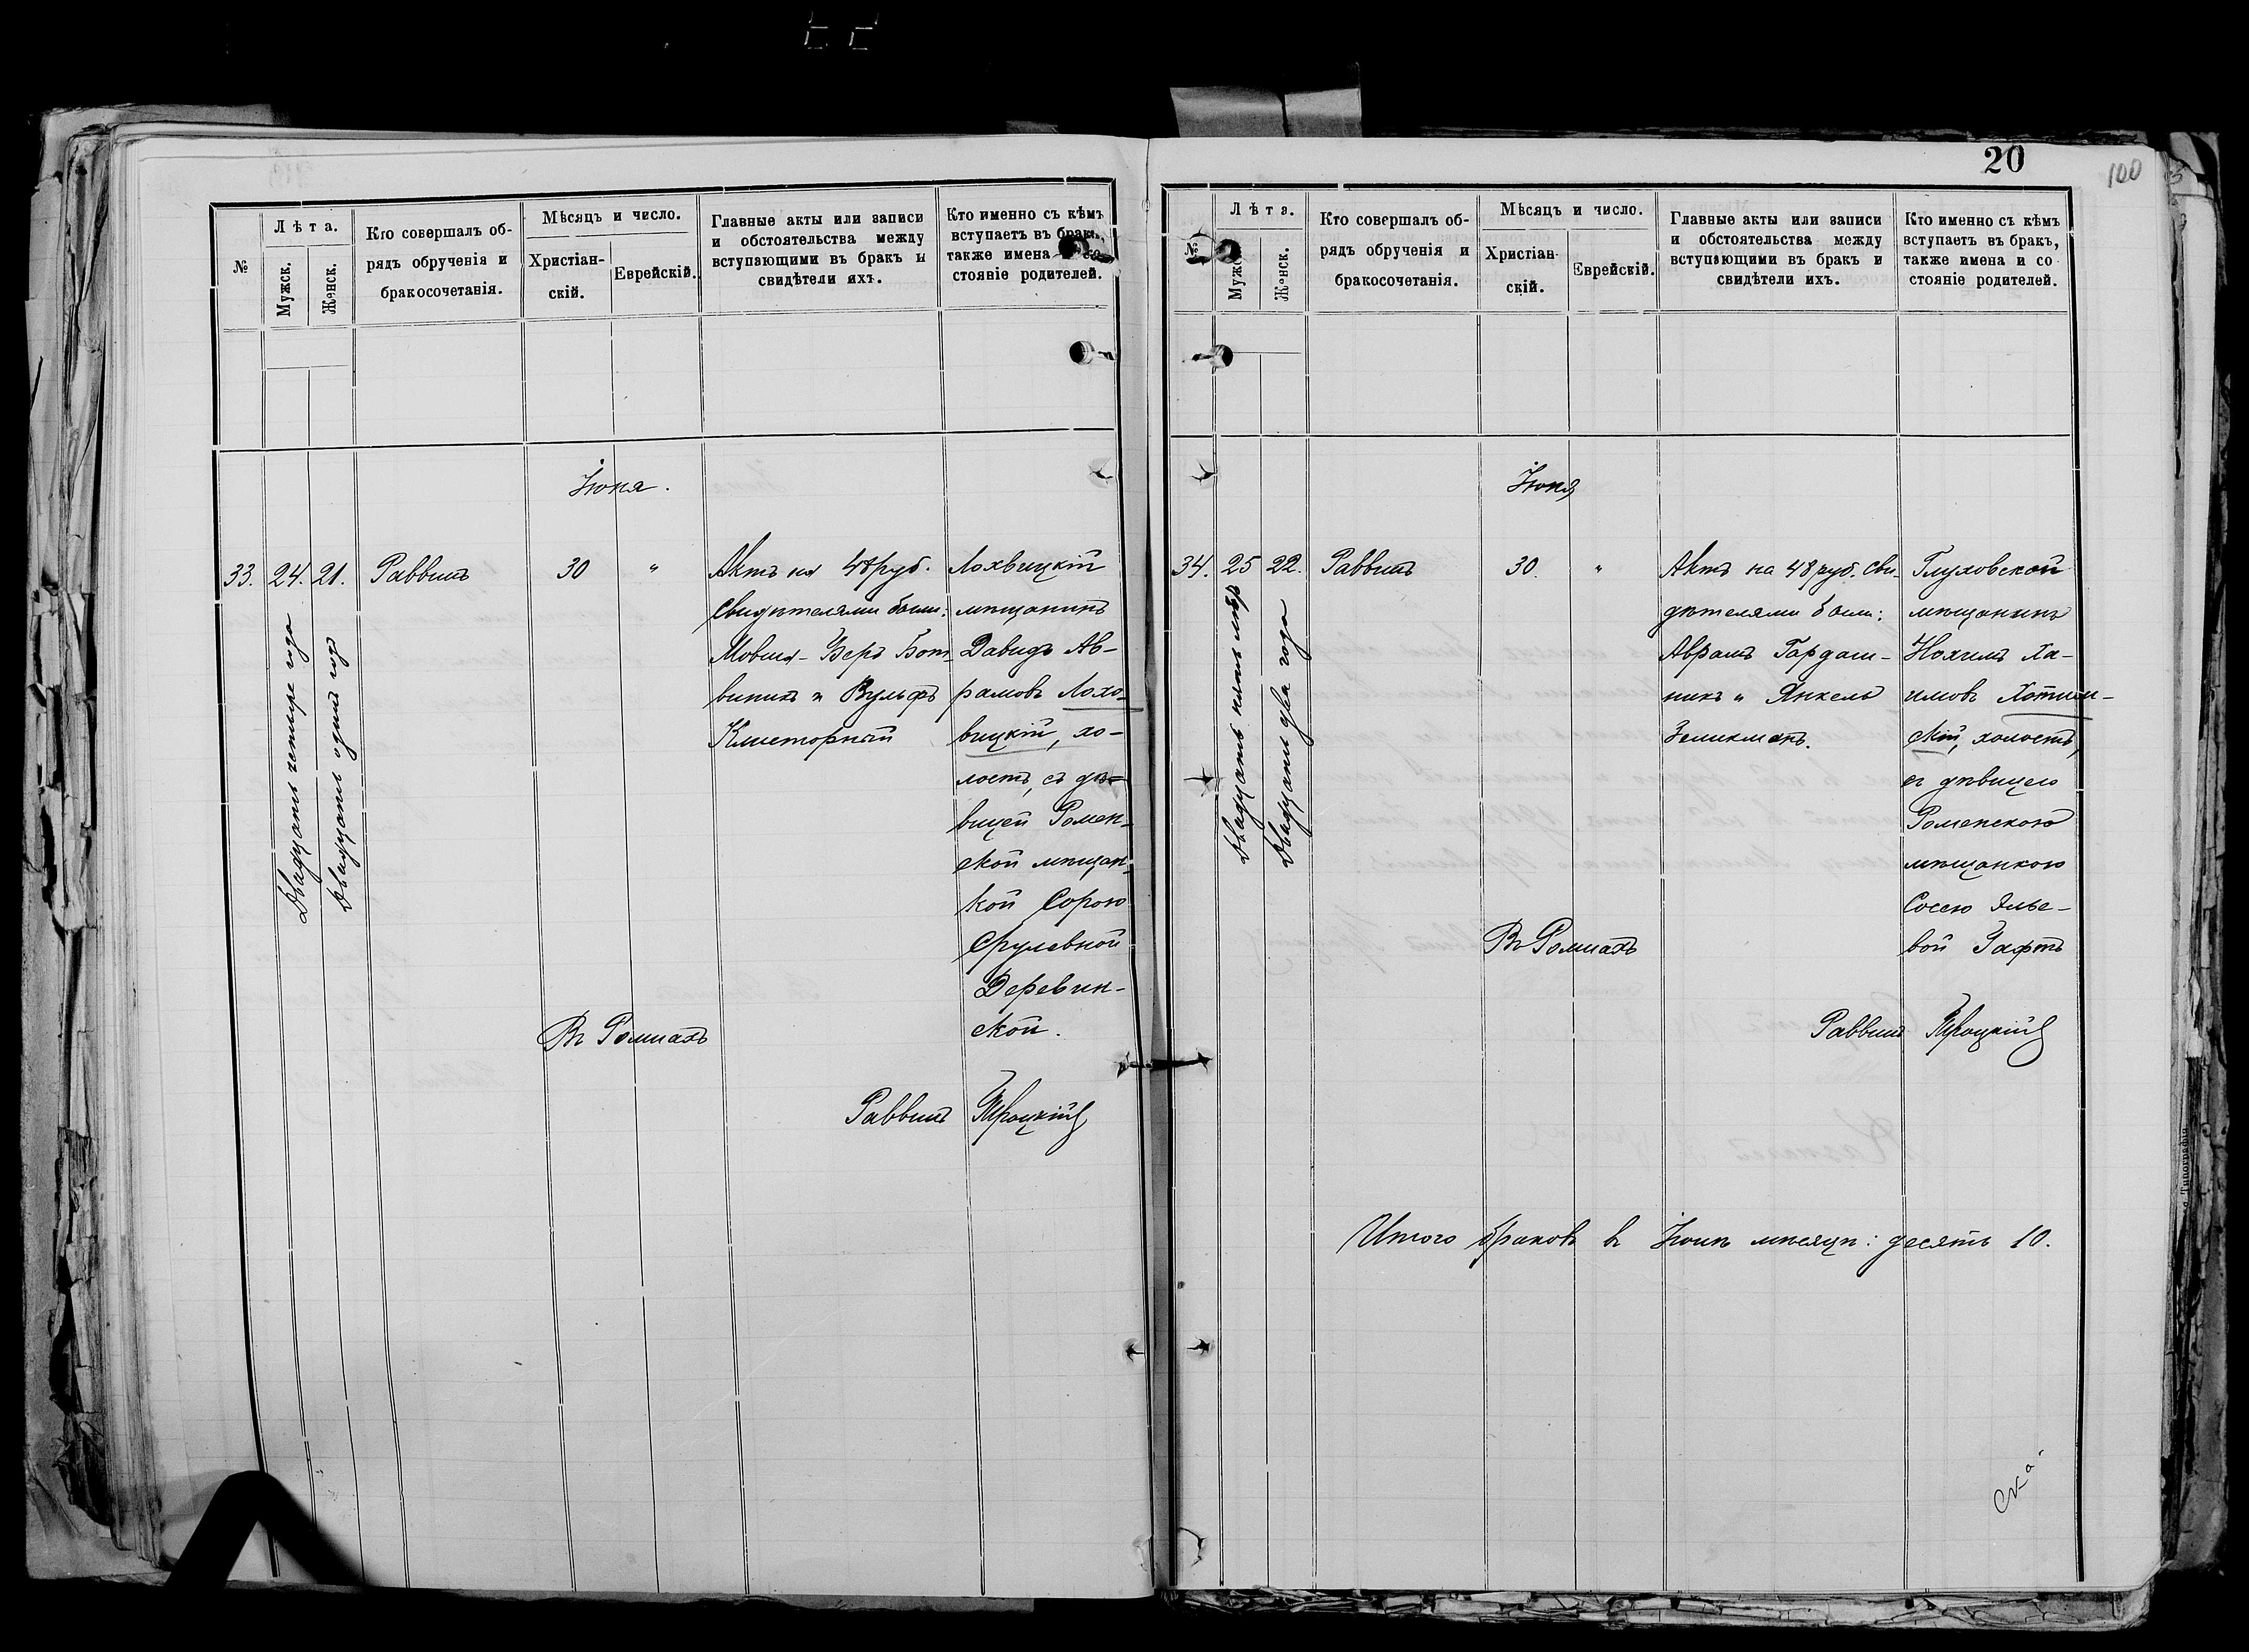 20
100
№
Лѣта.
Мужск.
Женск.
Кто совершалъ об-
рядъ обрученія и
бракосочетанія.
Мѣсяцъ и число.
Христіан-
скій.
Еврейскій.
Главные акты или записи
и обстоятельства между
вступающими въ бракъ и
свидѣтели ихъ.
Кто именно съ кѣмъ
вступаетъ въ бракъ,
также имена
стояніе родителей.
Іюня.
33. 24. 21. Раввинъ 30 "
Двадцать четыре года
Двадцать одинъ годъ
Актъ на 48 руб.
Свидѣтелями были:
Мовша-Беръ Бот-
виникъ и Вульфъ
Клисторный
Лохвицкій
мѣщанинъ
Давидъ Ав-
рамовъ Лохо-
вицкій, хо-
лостъ, съ дѣ-
вицей Ромен-
ской мѣщан-
кой Сорою
Срулевной
Деревин-
ской.
Въ Ромнахъ
Раввинъ Троцкій
№
Лѣта.
Мужск.
Женск.
Кто совершалъ об-
рядъ обрученія и
бракосочетанія.
Мѣсяцъ и число.
Христіан-
скій.
Еврейскій.
Главные акты или записи
и обстоятельства между
вступающими въ бракъ и
свидѣтели ихъ.
Кто именно съ кѣмъ
вступаетъ въ бракъ,
также имена и со
стояніе родителей.
Іюня
34. 25 22. Раввинъ 30. "
Двадцать пять лѣтъ
Двадцать два года
Актъ на 48 руб. Сви-
дѣтелями были:
Аврамъ Гордаш-
никъ и Янкель
Зеликманъ.
Глуховской
мѣщанинъ
Нохимъ Ха-
имовъ Хотим-
скій, холостъ,
съ дѣвицею
Роменскою
мѣщанкою
Сосею Элье-
вой Зафтъ
Въ Ромнахъ
Раввинъ Троцкій
Итого браковъ въ Іюнѣ мѣсяцѣ: десять 10.